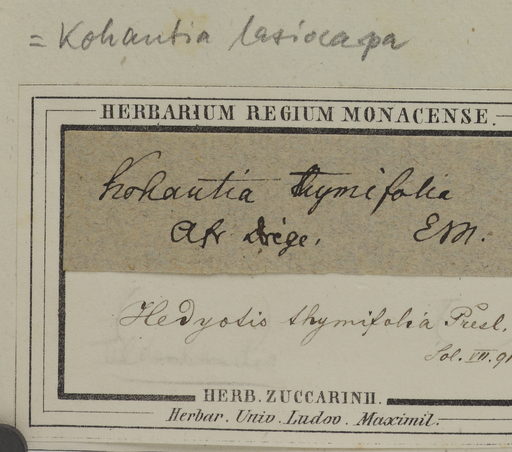 = Kohautia lasiocarpa
HERBARIUM REGIUM MONACENSE.
Kohautia thymifolia
Afr Drège. EM.
Hedyotis thymifolia Presl.
Sol. VII. 91
HERB. ZUCCARINII.
Herbar. Univ. Ludov. Maximil.